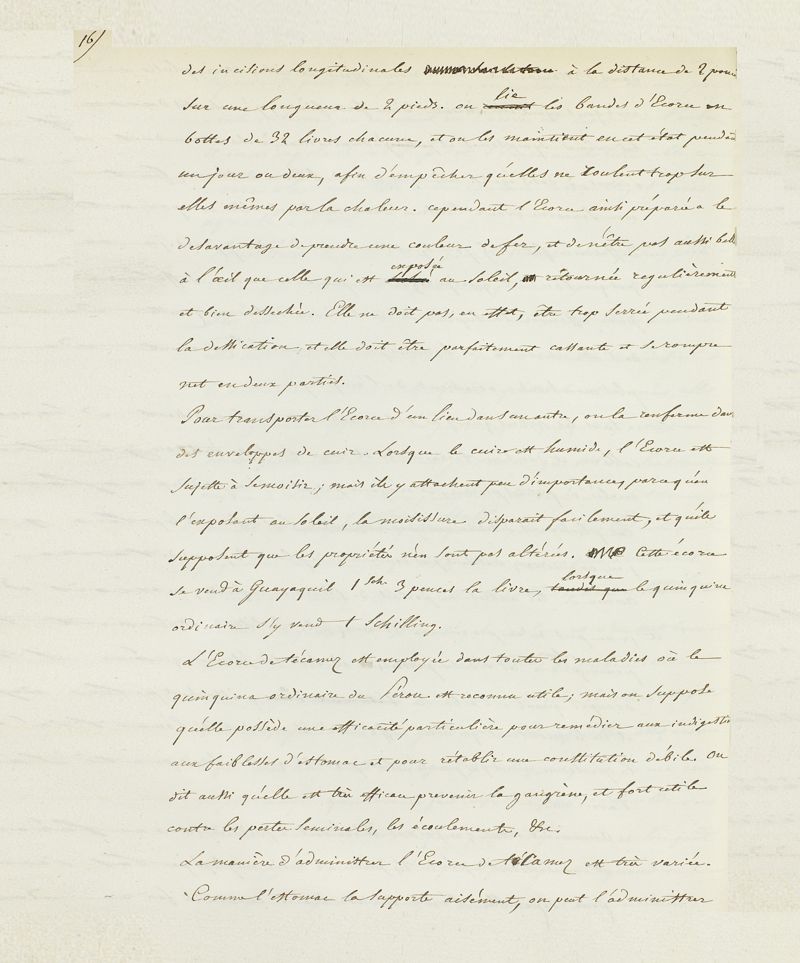 16/
des incisions longitudinales à la distance de 2 pouc
sur une longueur de 2 pieds. on lie les bandes d'Ecorce en
bottes de 32 livres chacune, et on les maintient en cet état pendan
un jour ou deux, afin d'empêcher qu'elles ne roulent trop sur
elles mêmes par la chaleur. cependant l'Ecorce ainsi préparée a le
desavantage de prendre une couleur de fer, et de n'être pas aussi bell
à l'œil que celle qui est exposée au soleil, retournée regulièrement
et bien dessechée. Elle ne doit pas, en effet, être trop serrée pendant
la dessication, et elle doit être parfaitement cassante et se rompre
net en deux parties.
Pour transporter l'Ecorce d'un lieu dans un autre, on la renferme dan
des enveloppes de cuir. Lorsque le cuir est humide, l'Ecorce est
sujette à se moisir; mais ils y attachent peu d'importance, parce qu'en
l'exposant au soleil, la moisissure disparait facilement, et qu'ils
supposent que les propriétés n'en sont pas altérées. Cette écorce
se vend à Guayaquil 1 sch. 3 pences la livre, lorsque le quinquina
ordinaire s'y vend 1 Schilling.
L'Ecorce de técamez est employée dans toutes les maladies où le
quinquina ordinaire du Pérou est reconnu utile; mais on suppose
qu'elle possède une efficacité particulière pour remédier aux indigestio
aux faiblesses d'estomac et pour rétablir une constitution débile. On
dit aussi qu'elle est très efficace prevenir la gangrène, et fort utile
contre les pertes seminales, les écoulements, &c.
La manière d'administrer l'Ecorce de técamez est très variée.
Comme l'estomac la supporte aisément, on peut l'administrer